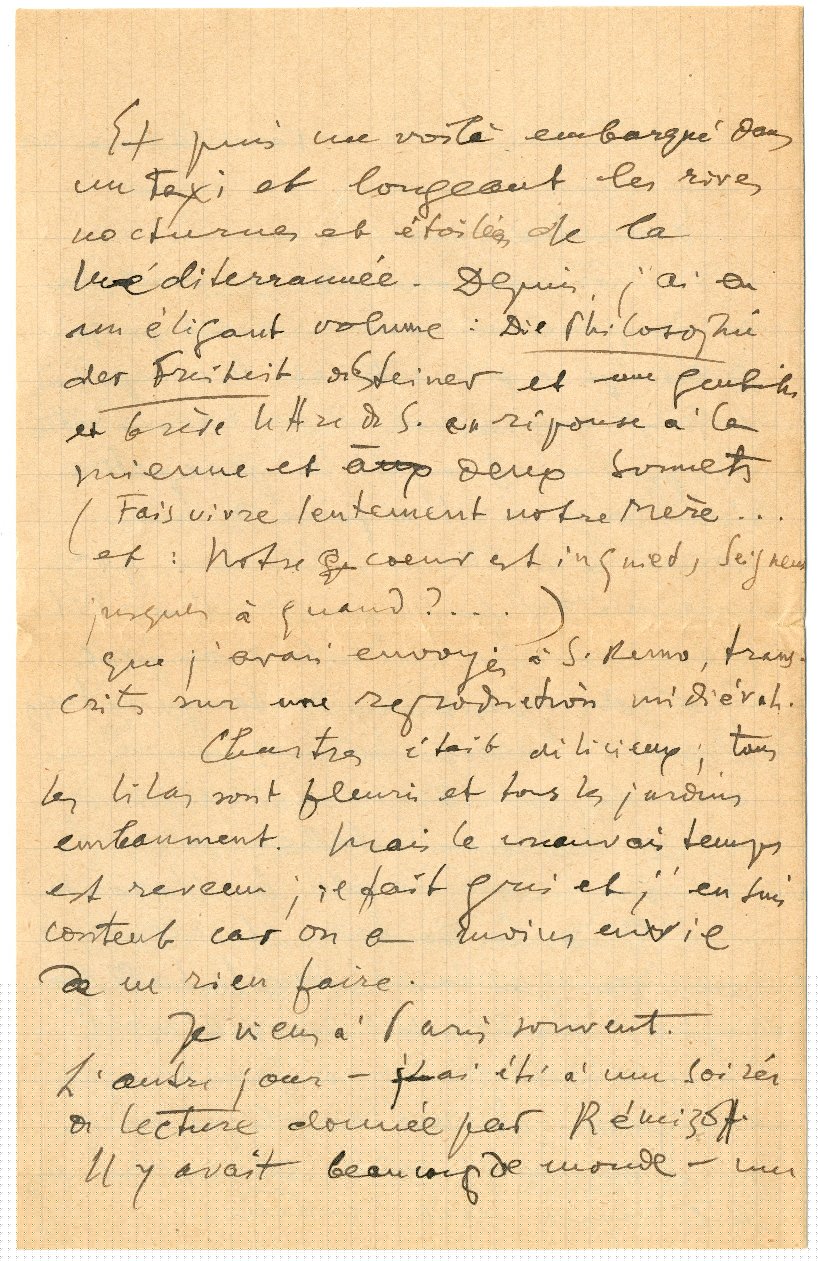 Et puis me voilà embarqué dans
un Taxi et longeant les rives
nocturnes et étoilées de la
Méditerrannée. Depuis, j'ai eu
un élégant volume : Die Philosophie
der Freiheit de Steiner et une gentille
et brève lettre de S. en réponse à la
mienne et aux deux sonnets
(Fais vivre lentement notre Mère...
et : Notre coeur est inquiet, Seigneur
jusques à quand ?....)
que j'avais envoyés à S. Remo, trans-
crits sur une reproduction médiévale.
Chartres était délicieux ; tous
les lilas sont fleuris et tous les jardins
embaument. Mais le mauvais temps
est revenu ; il fait gris et j'en suis
content car on a moins envie
de ne rien faire.
Je viens à Paris souvent.
L'autre jour – j'ai été à une soirée
de lecture donnée par Rémizoff.
Il y avait beaucoup de monde – une